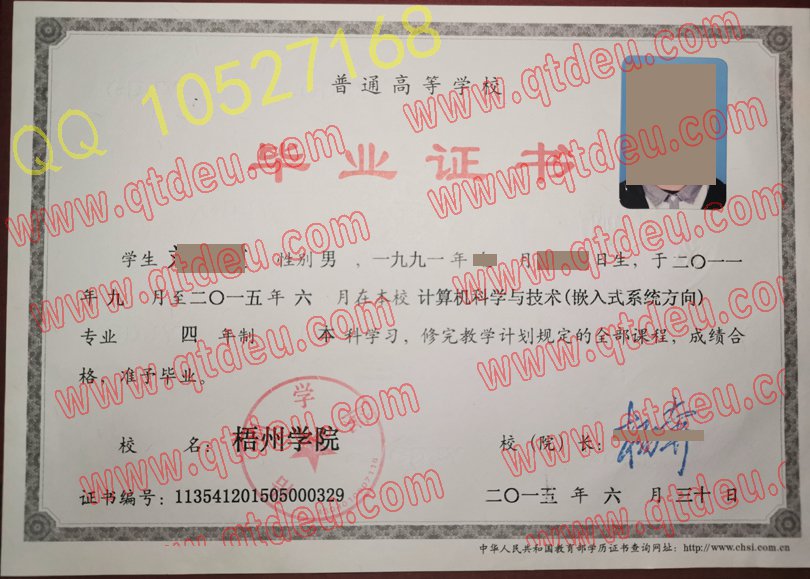 QQ 10527168
www.qtdeu.com
www.qtdeu.com
普通高等学校
毕业证书
www.qtdeu.com
www.qtdeu.com
学生 性别 男 ，一九九一年 月 日生，于二〇一一
年九 月至二〇一五年 六 月在本校 计算机科学与技术(嵌入式系统方向)
www.qtdeu.com
www.qtdeu.com
专业 四 年制 本 科学习，修完教学计划规定的全部课程，成绩合
格，准予毕业。
www.qtdeu.com
www.qtdeu.com
学
校 名：梧州学院 校（院）长：
证书编号：113541201505000329 二〇一五 年 六 月 三十 日
www.qtdeu.com
www.qtdeu.com
中华人民共和国教育部学历证书查询网址：http://www.chsi.com.cn